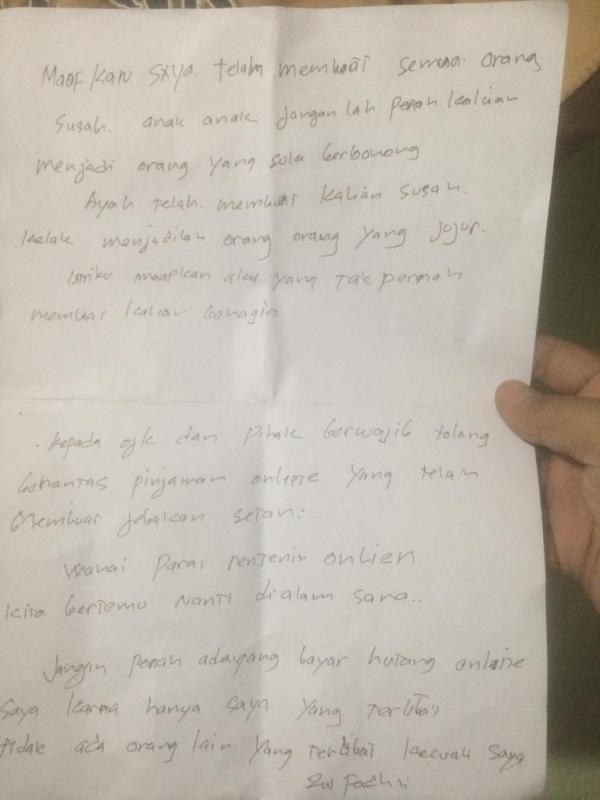 Maaf Kan Saya telah membuat semua orang
Susah. anak anak Jangan lah pernah kalian
menjadi orang yang suka berbohong
Ayah telah membuat kalian susah.
kelak menjadilah orang orang yang jujur.
istriku maafkan aku yang tak pernah
membuat kalian bahagia
. kepada ojk dan Pihak berwajib tolong
berantas pinjaman online yang telah
Membuat jebakan setan.
wahai para rentenir onlien
kita bertemu nanti dialam sana..
Jangan pernah adayang bayar hutang online
Saya karna hanya saya yang terlibat
tidak ada orang lain yang terlibat kecuali saya
Zul Fadhli